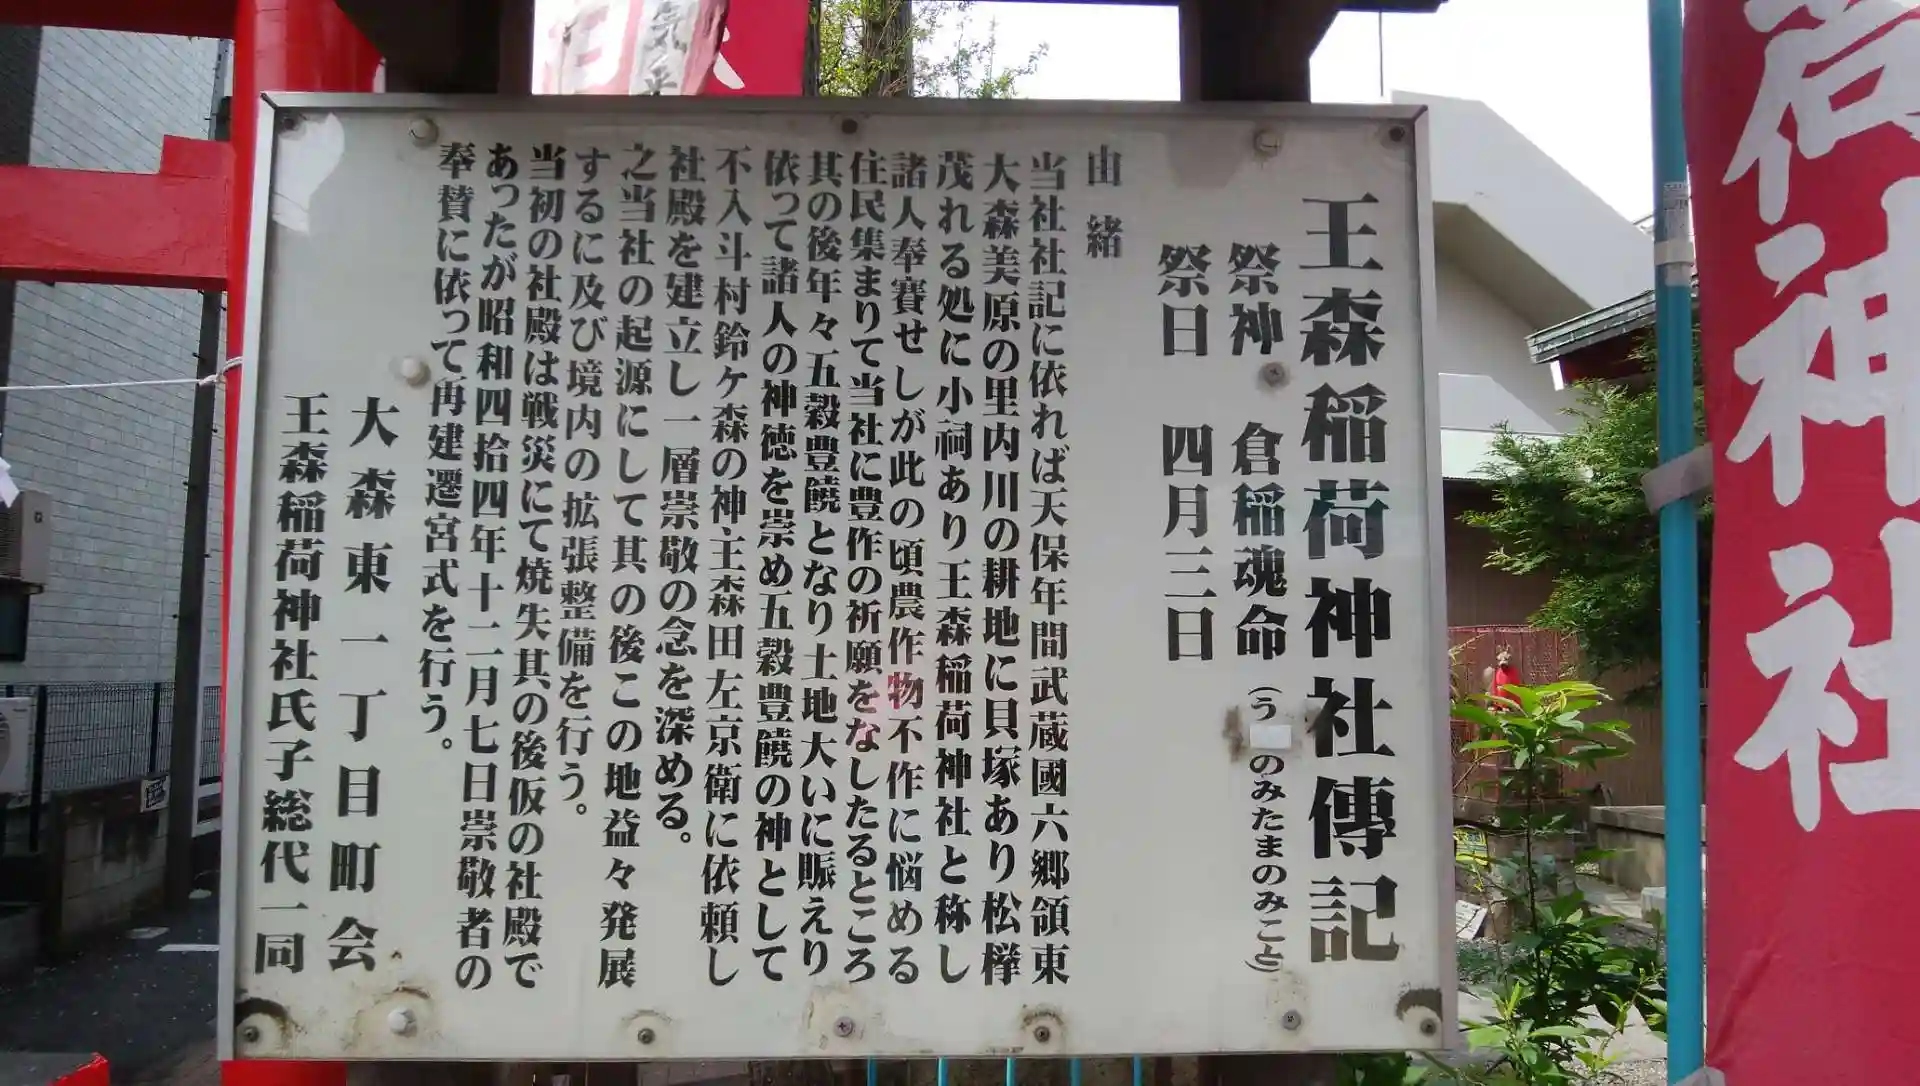 王森稲荷神社傳記
祭神 倉稲魂命(う のみたまのみこと)
祭日 四月三日
由緒
当社社記に依れば天保年間武蔵國六郷領東
大森美原の里内川の耕地に貝塚あり松欅
茂れる処に小祠あり王森稲荷神社と称し
諸人奉賽せしが此の頃農作物不作に悩める
住民集まりて当社に豊作の祈願をなしたるところ
其の後年々五穀豊饒となり土地大いに賑えり
依って諸人の神徳を崇め五穀豊饒の神として
不入斗村鈴ケ森の神主森田左京衛に依頼し
社殿を建立し一層崇敬の念を深める。
之当社の起源にして其の後この地益々発展
するに及び境内の拡張整備を行う。
当初の社殿は戦災にて焼失其の後仮の社殿で
あったが昭和四拾四年十二月七日崇敬者の
奉賛に依って再建遷宮式を行う。
大森東一丁目町会
王森稲荷神社氏子総代一同
荷神社